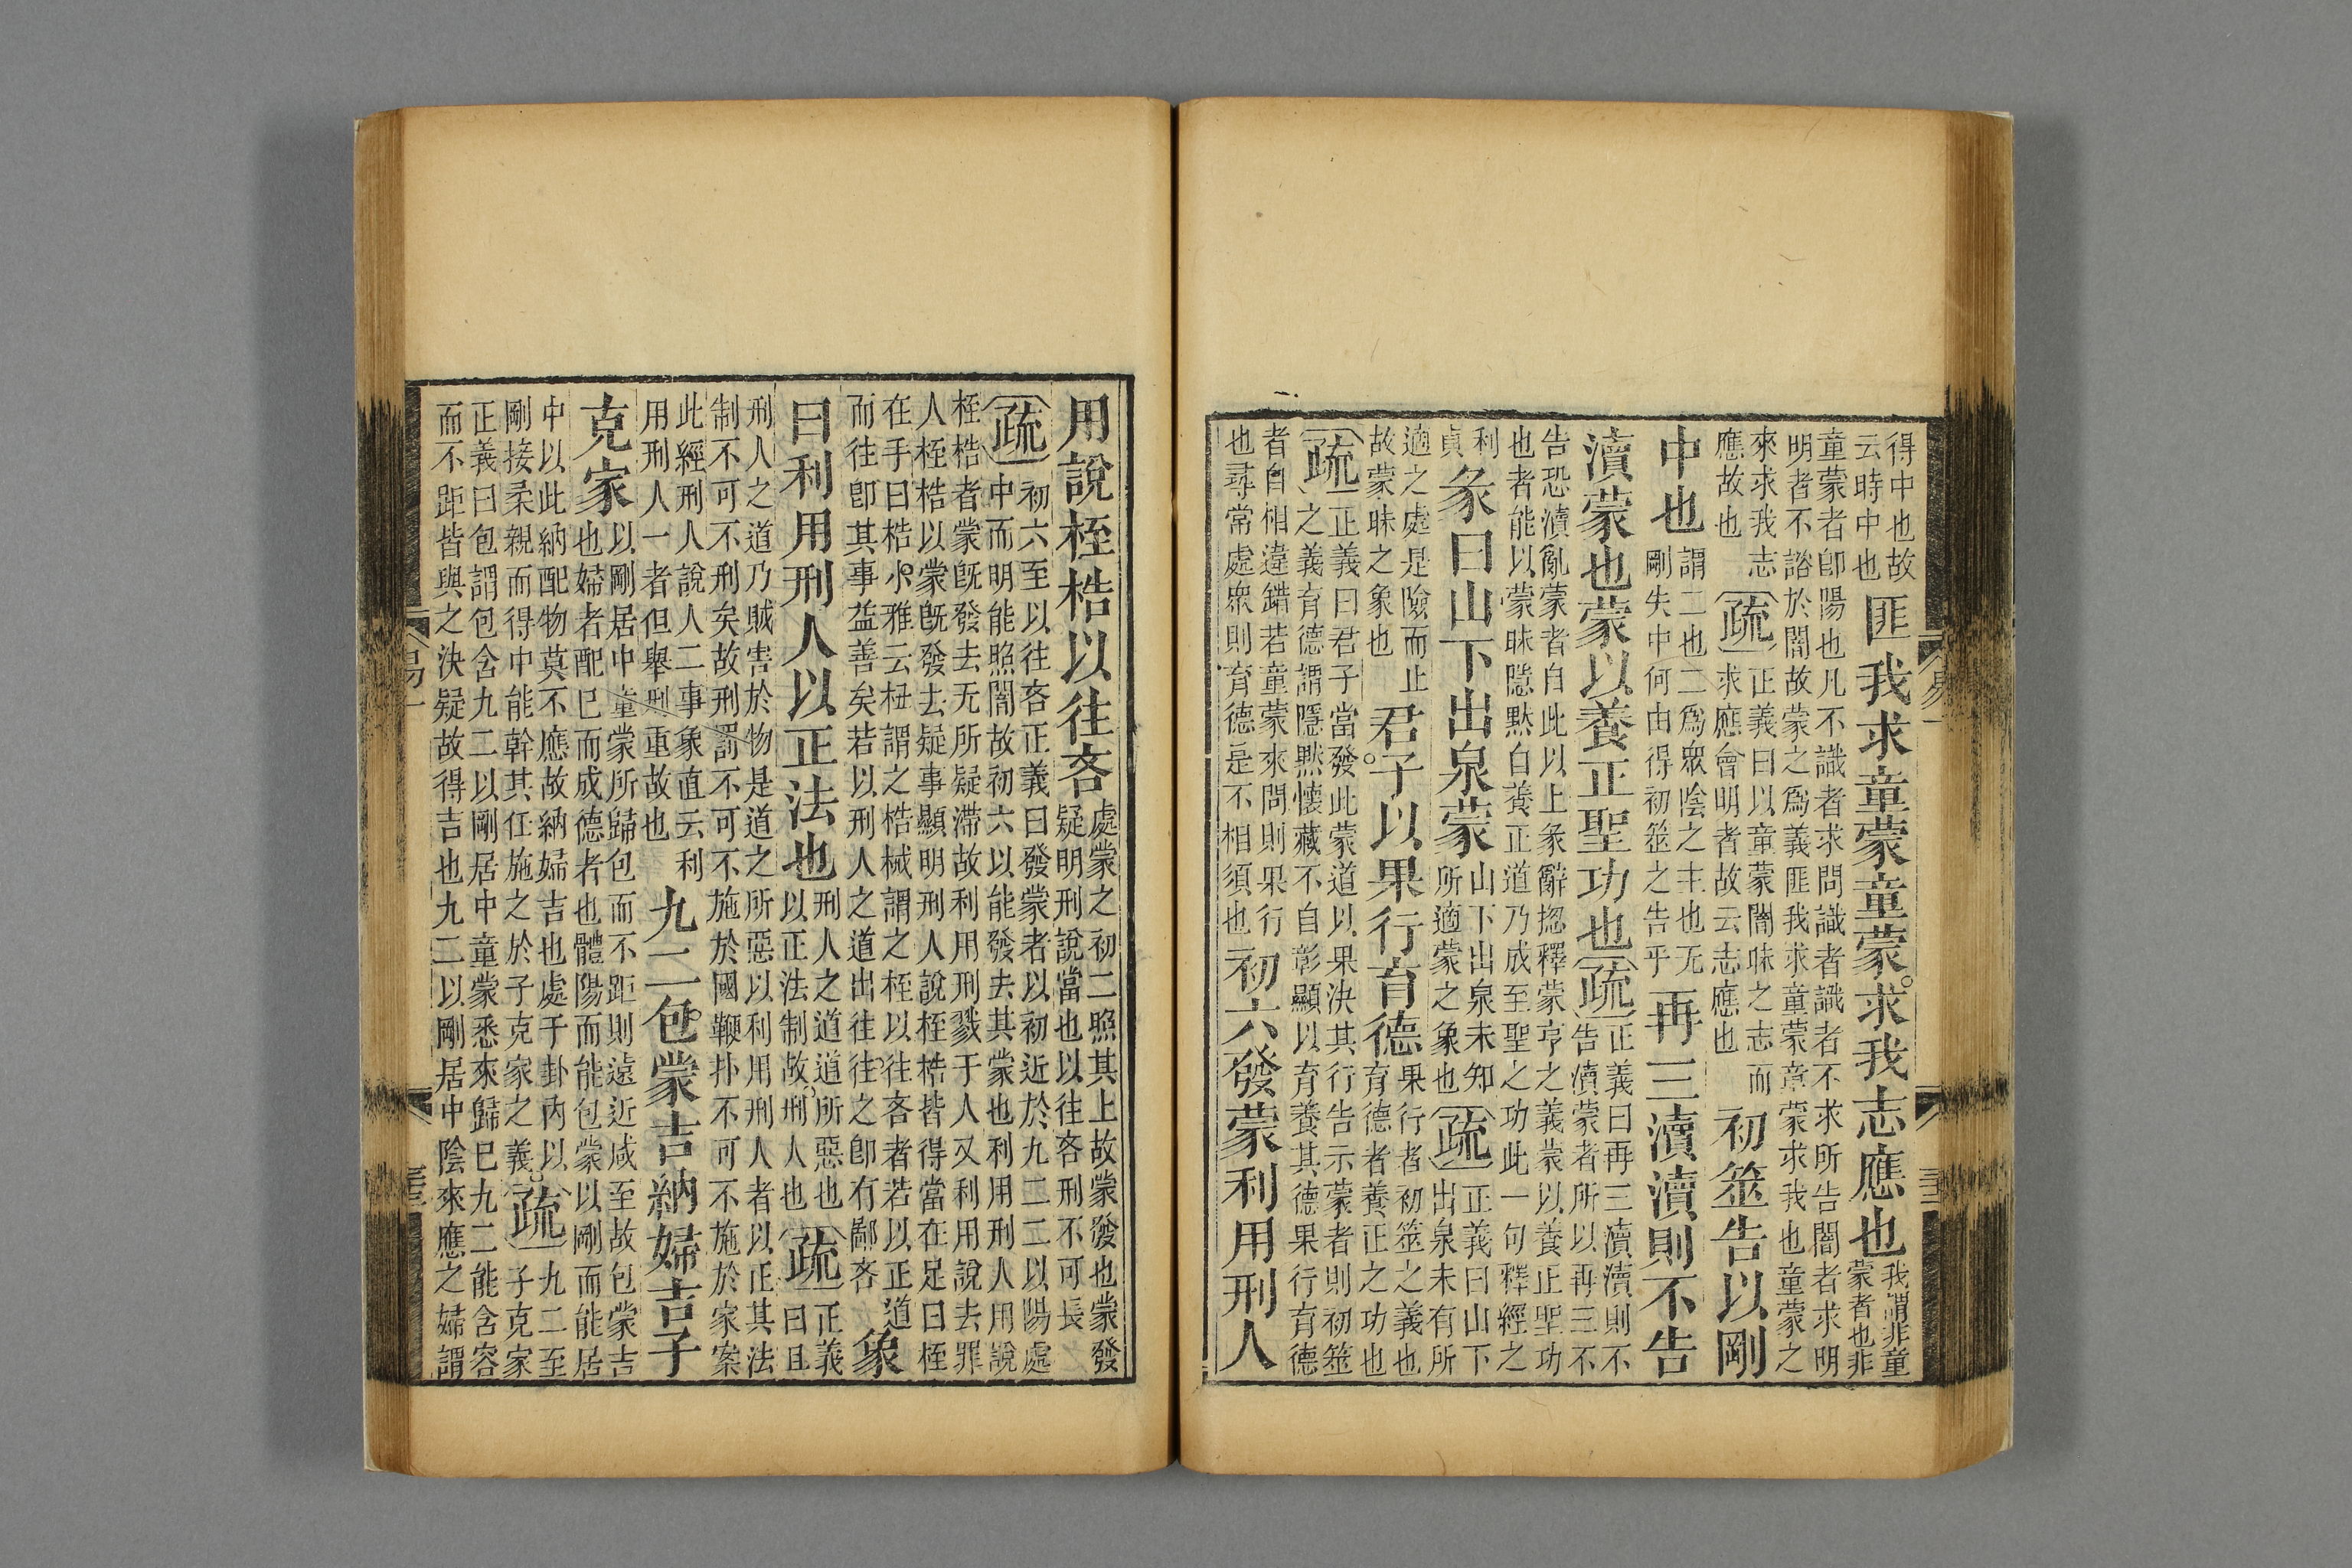 得中也故
云時中也
匪我求童蒙童蒙求我志應也
我謂非童
蒙者也非
童蒙者卽陽也凡不識者求問識者識者不求所告闇者求明
明者不諮於闇故蒙之爲義匪我求童蒙童蒙求我也童蒙之
來求我志
應故也
疏
正義曰以童蒙闇昧之志而
求應會明者故云志應也
初筮告以剛
中也
謂二也二爲衆陰之主也无
剛失中何由得初筮之告乎
再三瀆瀆則不告
瀆蒙也蒙以養正聖功也
疏
正義曰再三瀆瀆則不
告瀆蒙者所以再三不
告恐瀆亂蒙者自此以上彖辭揔釋蒙亨之義蒙以養正聖功
也者能以蒙昧隱默自養正道乃成至聖之功此一句釋經之
利
貞
彖曰山下出泉蒙
山下出泉未知
所適蒙之象也
疏
正義曰山下
出泉未有所
適之處是險而止
故蒙昧之象也
君子以果行育德
果行者初筮之義也
育德者養正之功也
疏
正義曰君子當發此蒙道以果決其行告示蒙者則初筮
之義育德謂隱默懷藏不自彰顯以育養其德果行育德
者自相違錯若童蒙來問則果行
也尋常處衆則育德是不相須也
初六發蒙利用刑人
用說桎梏以往吝
處蒙之初二照其上故蒙發也蒙發
疑明刑說當也以往吝刑不可長
疏
初六至以往吝正義曰發蒙者以初近於九二二以陽處
中而明能照闇故初六以能發去其蒙也利用刑人用說
桎梏者蒙旣發去无所疑滯故利用刑戮于人又利用說去罪
人桎梏以蒙旣發去疑事顯明刑人說桎梏皆得當在足曰桎
在手曰梏小雅云杻謂之梏械謂之桎以往吝者若以正道
而往卽其事益善矣若以刑人之道出往往之卽有鄙吝
象
曰利用刑人以正法也
刑人之道道所惡也
以正法制故刑人也
疏
正義
曰且
刑人之道乃賊害於物是道之所惡以利用刑人者以正其法
制不可不刑矣故刑罰不可不施於國鞭扑不可不施於家案
此經刑人說人二事象直云利
用刑人一者但舉刑重故也
九二包蒙吉納婦吉子
克家
以剛居中童蒙所歸包而不距則遠近咸至故包蒙吉
也婦者配已而成德者也體陽而能包蒙以剛而能居
中以此納配物莫不應故納婦吉也處于卦內以
剛接柔親而得中能幹其任施之於子克家之義
疏
九二至
子克家
正義曰包謂包含九二以剛居中童蒙悉來歸已九二能含容
而不距皆與之決疑故得吉也九二以剛居中陰來應之婦謂
易一